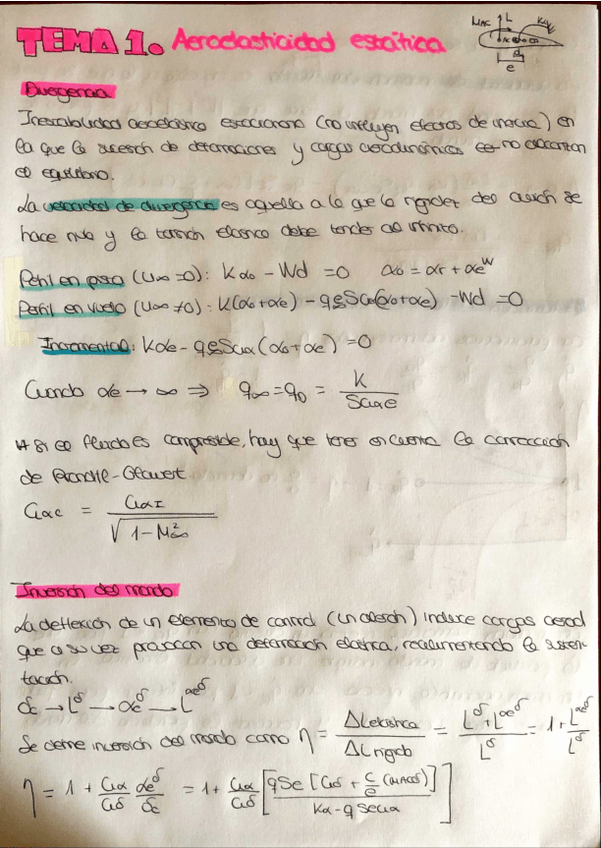 TEMA 1. Aeroelasticidad estática
MAC L Kα
e
Divergencia
Inestabilidad aeroelástica estacionaria (no influyen efectos de inercia) en
la que la sucesión de deformaciones y cargas aerodinámicas no alcanzan
el equilibrio.
La velocidad de divergencia es aquella a la que la rigidez del avión se
hace nula y la torsión elástica debe tender al infinito.
Perfil en pista (U∞=0): Kα0 - Wd = 0 α0 = αr + αe^W
Perfil en vuelo (U∞≠0): K(α0+αe) - qeSClα(α0+αe) - Wd = 0
Incremental: Kαe - qeSClα(α0+αe) = 0
Cuando αe → ∞ ⇒ q∞ = qD = K / SClαe
Si el fluido es compresible, hay que tener en cuenta la corrección
de Prandtl-Glauert
Clαc = ClαI / √(1-M∞²)
Inversión del mando
La deflexión de un elemento de control (un alerón) induce cargas aerod
que a su vez provocan una deformación elástica, realimentando la susten-
tación.
δc → L^δ → αe^δ → L^αe^δ
Se define inversión del mando como η = ΔLelástica / ΔLrígida = (L^δ + L^αe^δ) / L^δ = 1 + L^αe^δ / L^δ
η = 1 + (Clα/Clδ) (αe^δ/δc) = 1 + (Clα/Clδ) [qSe [Clδ + (c/e)(CMACδ)] / (Kα - qSeClα)]